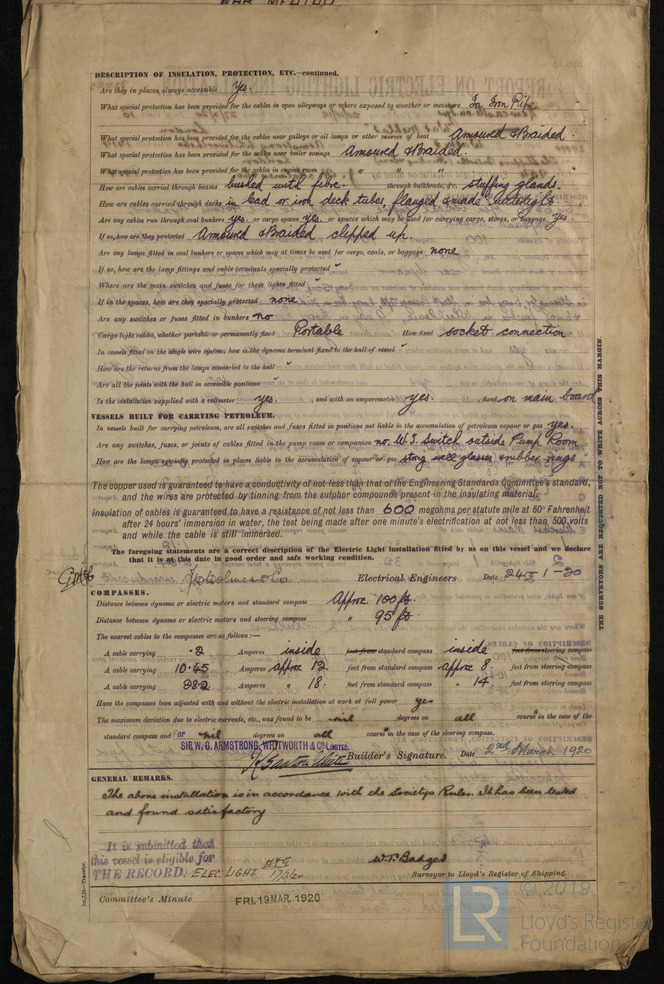 WAR MEHTAR
DESCRIPTION OF INSULATION, PROTECTION, ETC.—continued.
Are they in places, always accessible Yes.
What special protection has been provided for the cables in open alleyways or where exposed to weather or moisture In Iron Pipe
What special protection has been provided for the cables near galleys or oil lamps or other sources of heat Amoured & Braided.
What special protection has been provided for the cables near boiler casings Amoured & Braided.
What special protection has been provided for the cables in engine room " " "
How are cables carried through beams bushed with fibre. through bulkheads, &c. stuffing glands.
How are cables carried through decks in lead or iron deck tubes, flanged & made watertight
Are any cables run through coal bunkers yes. or cargo spaces yes. or spaces which may be used for carrying cargo, stores, or baggage yes.
If so, how are they protected Amoured & Braided clipped up.
Are any lamps fitted in coal bunkers or spaces which may at times be used for cargo, coals, or baggage none
If so, how are the lamp fittings and cable terminals specially protected "
Where are the main switches and fuses for these lights fitted "
If in the spaces, how are they specially protected none
Are any switches or fuses fitted in bunkers no
Cargo light cables, whether portable or permanently fixed Portable How fixed socket connection
In vessels fitted on the single wire system, how is the dynamo terminal fixed to the hull of vessel "
How are the returns from the lamps connected to the hull "
Are all the joints with the hull in accessible positions "
Is the installation supplied with a voltmeter yes. , and with an amperemeter yes. , fixed on main board
VESSELS BUILT FOR CARRYING PETROLEUM.
In vessels built for carrying petroleum, are all switches and fuses fitted in positions not liable to the accumulation of petroleum vapour or gas yes.
Are any switches, fuses, or joints of cables fitted in the pump room or companion no. W.T. Switch outside Pump Room
How are the lamps specially protected in places liable to the accumulation of vapour or gas stong well glasses & rubber rings
The copper used is guaranteed to have a conductivity of not less than that of the Engineering Standards Committee's standard,
and the wires are protected by tinning from the sulphur compounds present in the insulating material.
Insulation of cables is guaranteed to have a resistance of not less than 600 megohms per statute mile at 60° Fahrenheit
after 24 hours' immersion in water, the test being made after one minute's electrification at not less than 500 volts
and while the cable is still immersed.
The foregoing statements are a correct description of the Electric Light installation fitted by us on this vessel and we declare
that it is at this date in good order and safe working condition.
Holmes & Co Electrical Engineers Date 1-20
COMPASSES.
Distance between dynamo or electric motors and standard compass Approx. 100 ft.
Distance between dynamo or electric motors and steering compass " 95 ft
The nearest cables to the compasses are as follows:—
A cable carrying .2 Amperes inside feet from standard compass inside feet from steering compass
A cable carrying 10.45 Amperes approx 12. feet from standard compass approx 8. feet from steering compass
A cable carrying 38.2 Amperes " 18. feet from standard compass " 14 feet from steering compass
Have the compasses been adjusted with and without the electric installation at work at full power yes
The maximum deviation due to electric currents, etc., was found to be nil degrees on all course in the case of the
standard compass and or nil degrees on all course in the case of the steering compass.
SIR W. G. ARMSTRONG, WHITWORTH & Co. LIMITED.
Builder's Signature. Date 2nd March 1920
GENERAL REMARKS.
The above installation is in accordance with the Societys Rules. It has been tested
and found satisfactory
It is submitted that
this vessel is eligible for
THE RECORD. ELEC. LIGHT
W. T. Badger
Surveyor to Lloyd's Register of Shipping.
Committee's Minute FRI. 19 MAR. 1920
THE SURVEYORS ARE REQUESTED NOT TO WRITE ACROSS THIS MARGIN.
© 2019
LR
Lloyd's Register
Foundation